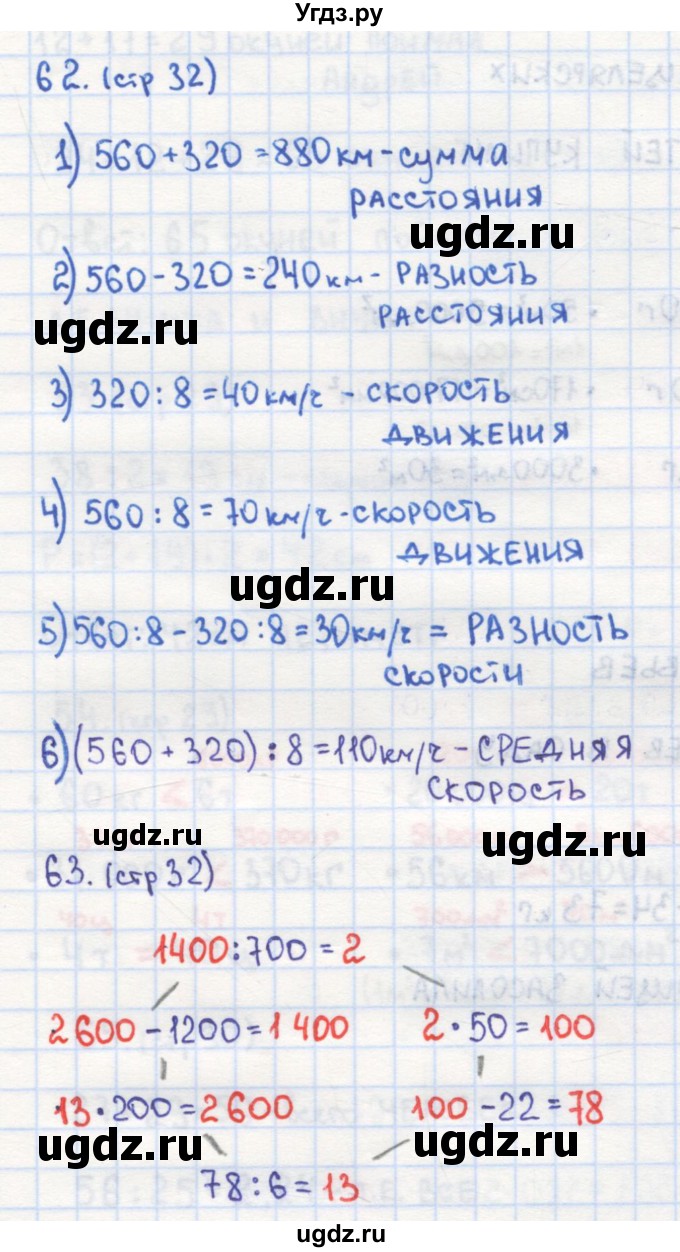 Угдз.ру
62. (стр 32)
1) 560+320=880км-сумма
РАССТОЯНИЯ
ugdz.ru
2) 560-320=240км- РАЗНОСТЬ
РАССТОЯНИЯ
ugdz.ru
3) 320:8=40км/ч - СКОРОСТЬ
ДВИЖЕНИЯ
4) 560:8=70км/ч-СКОРОСТЬ
ДВИЖЕНИЯ
ugdz.ru
5) 560:8-320:8=30км/ч = РАЗНОСТЬ
СКОРОСТИ
6) (560+320):8=110км/ч - СРЕДНЯЯ
СКОРОСТЬ
ugdz.ru
ugdz.ru
63. (стр 32)
1400:700=2
2600-1200=1400 2·50=100
13·200=2600 100-22=78
ugdz.ru ugdz.ru
78:6=13
ugdz.ru